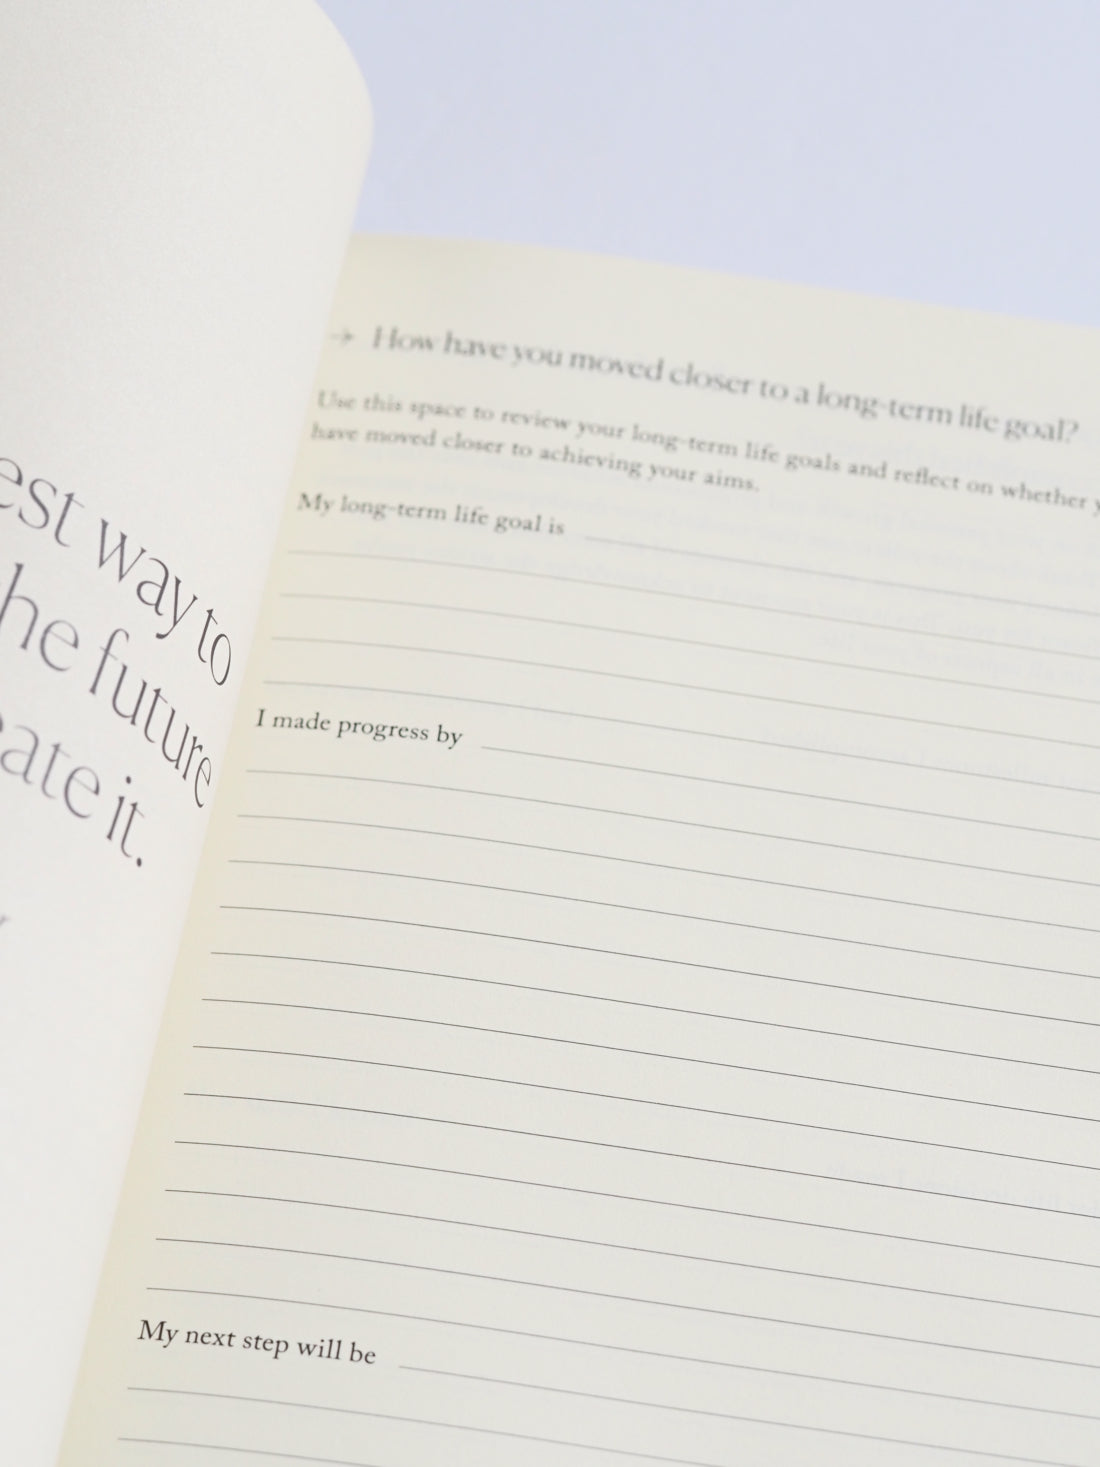 way to
future
it.
→ How have you moved closer to a long-term life goal?
Use this space to review your long-term life goals and reflect on whether
have moved closer to achieving your aims.
My long-term life goal is
I made progress by
My next step will be